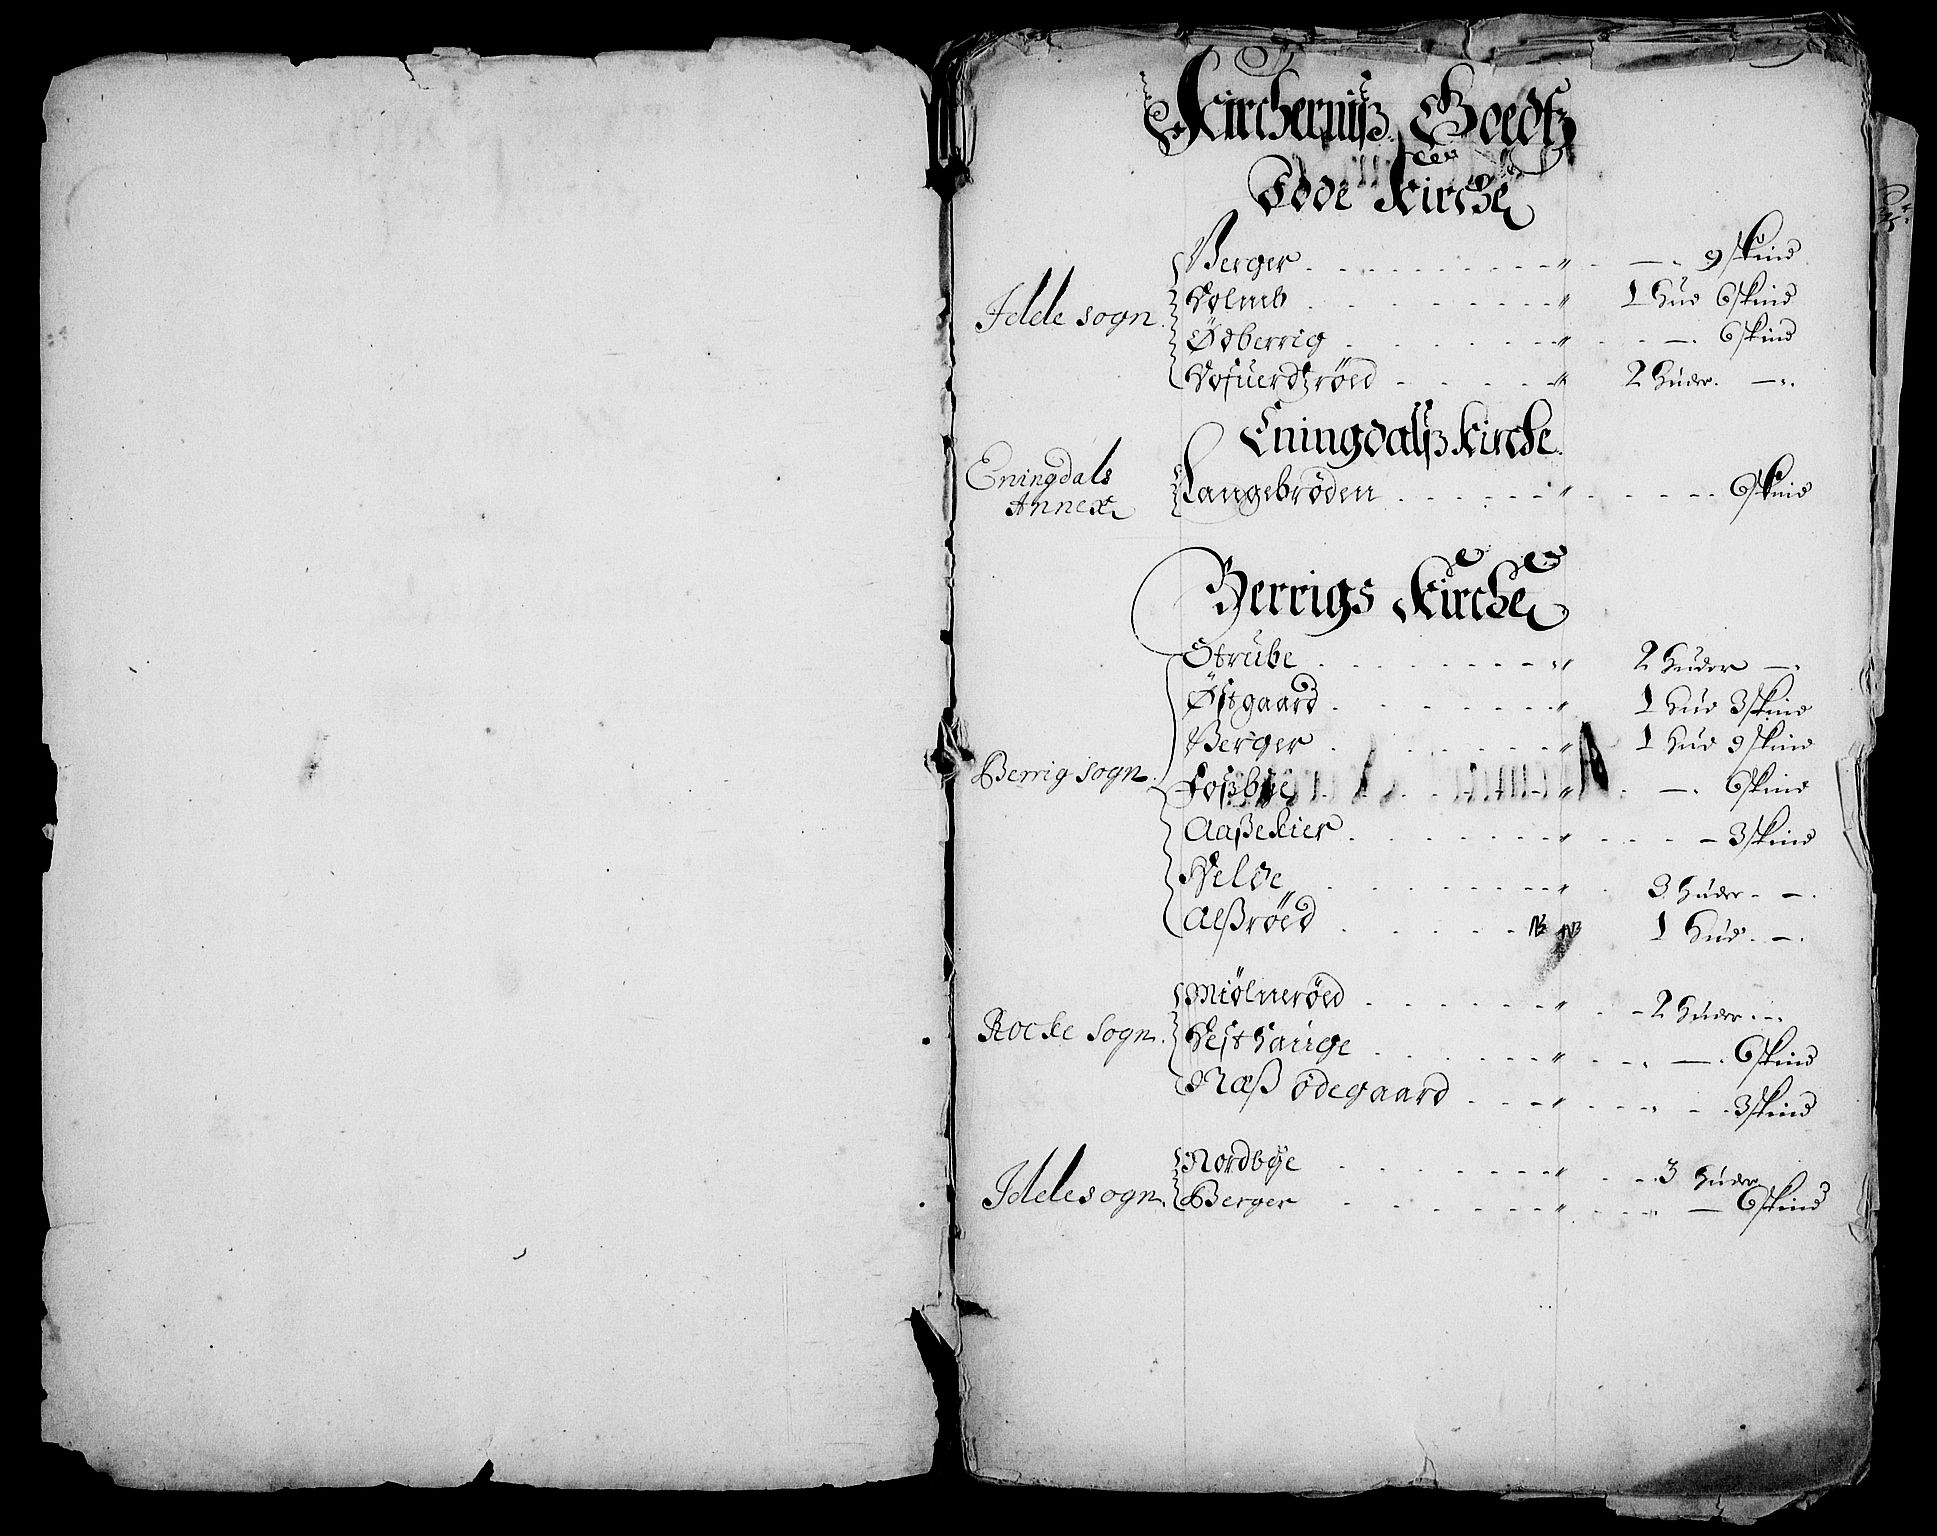 Kircherniß Goedtz
Edde Kirche
Idde sogn.
Berger " 9 skind
Holmb " 1 hud 6 skind
Ødberrig " 6 skind
Hofuerdtzröed " 2 huder.
Eningdalß Kirche.
Eningdals
Annex
Langebröden " 6 skind
Berrigs Kirche
Berrig sogn.
Strübe " 2 huder
Östgaard " 1 hud 3 skind
Berger " 1 hud 9 skind
Foßbye " 6 skind
Aaßekier " 3 skind
Helde " 3 huder
Alßröed NB NB 1 hud
Rocke sogn.
Miölneröed " 2 huder
Vesthauge " 6 skind
Næß ödegaard " 3 skind
Idde sogn.
Nordbye " 3 huder
Berger " 6 skind